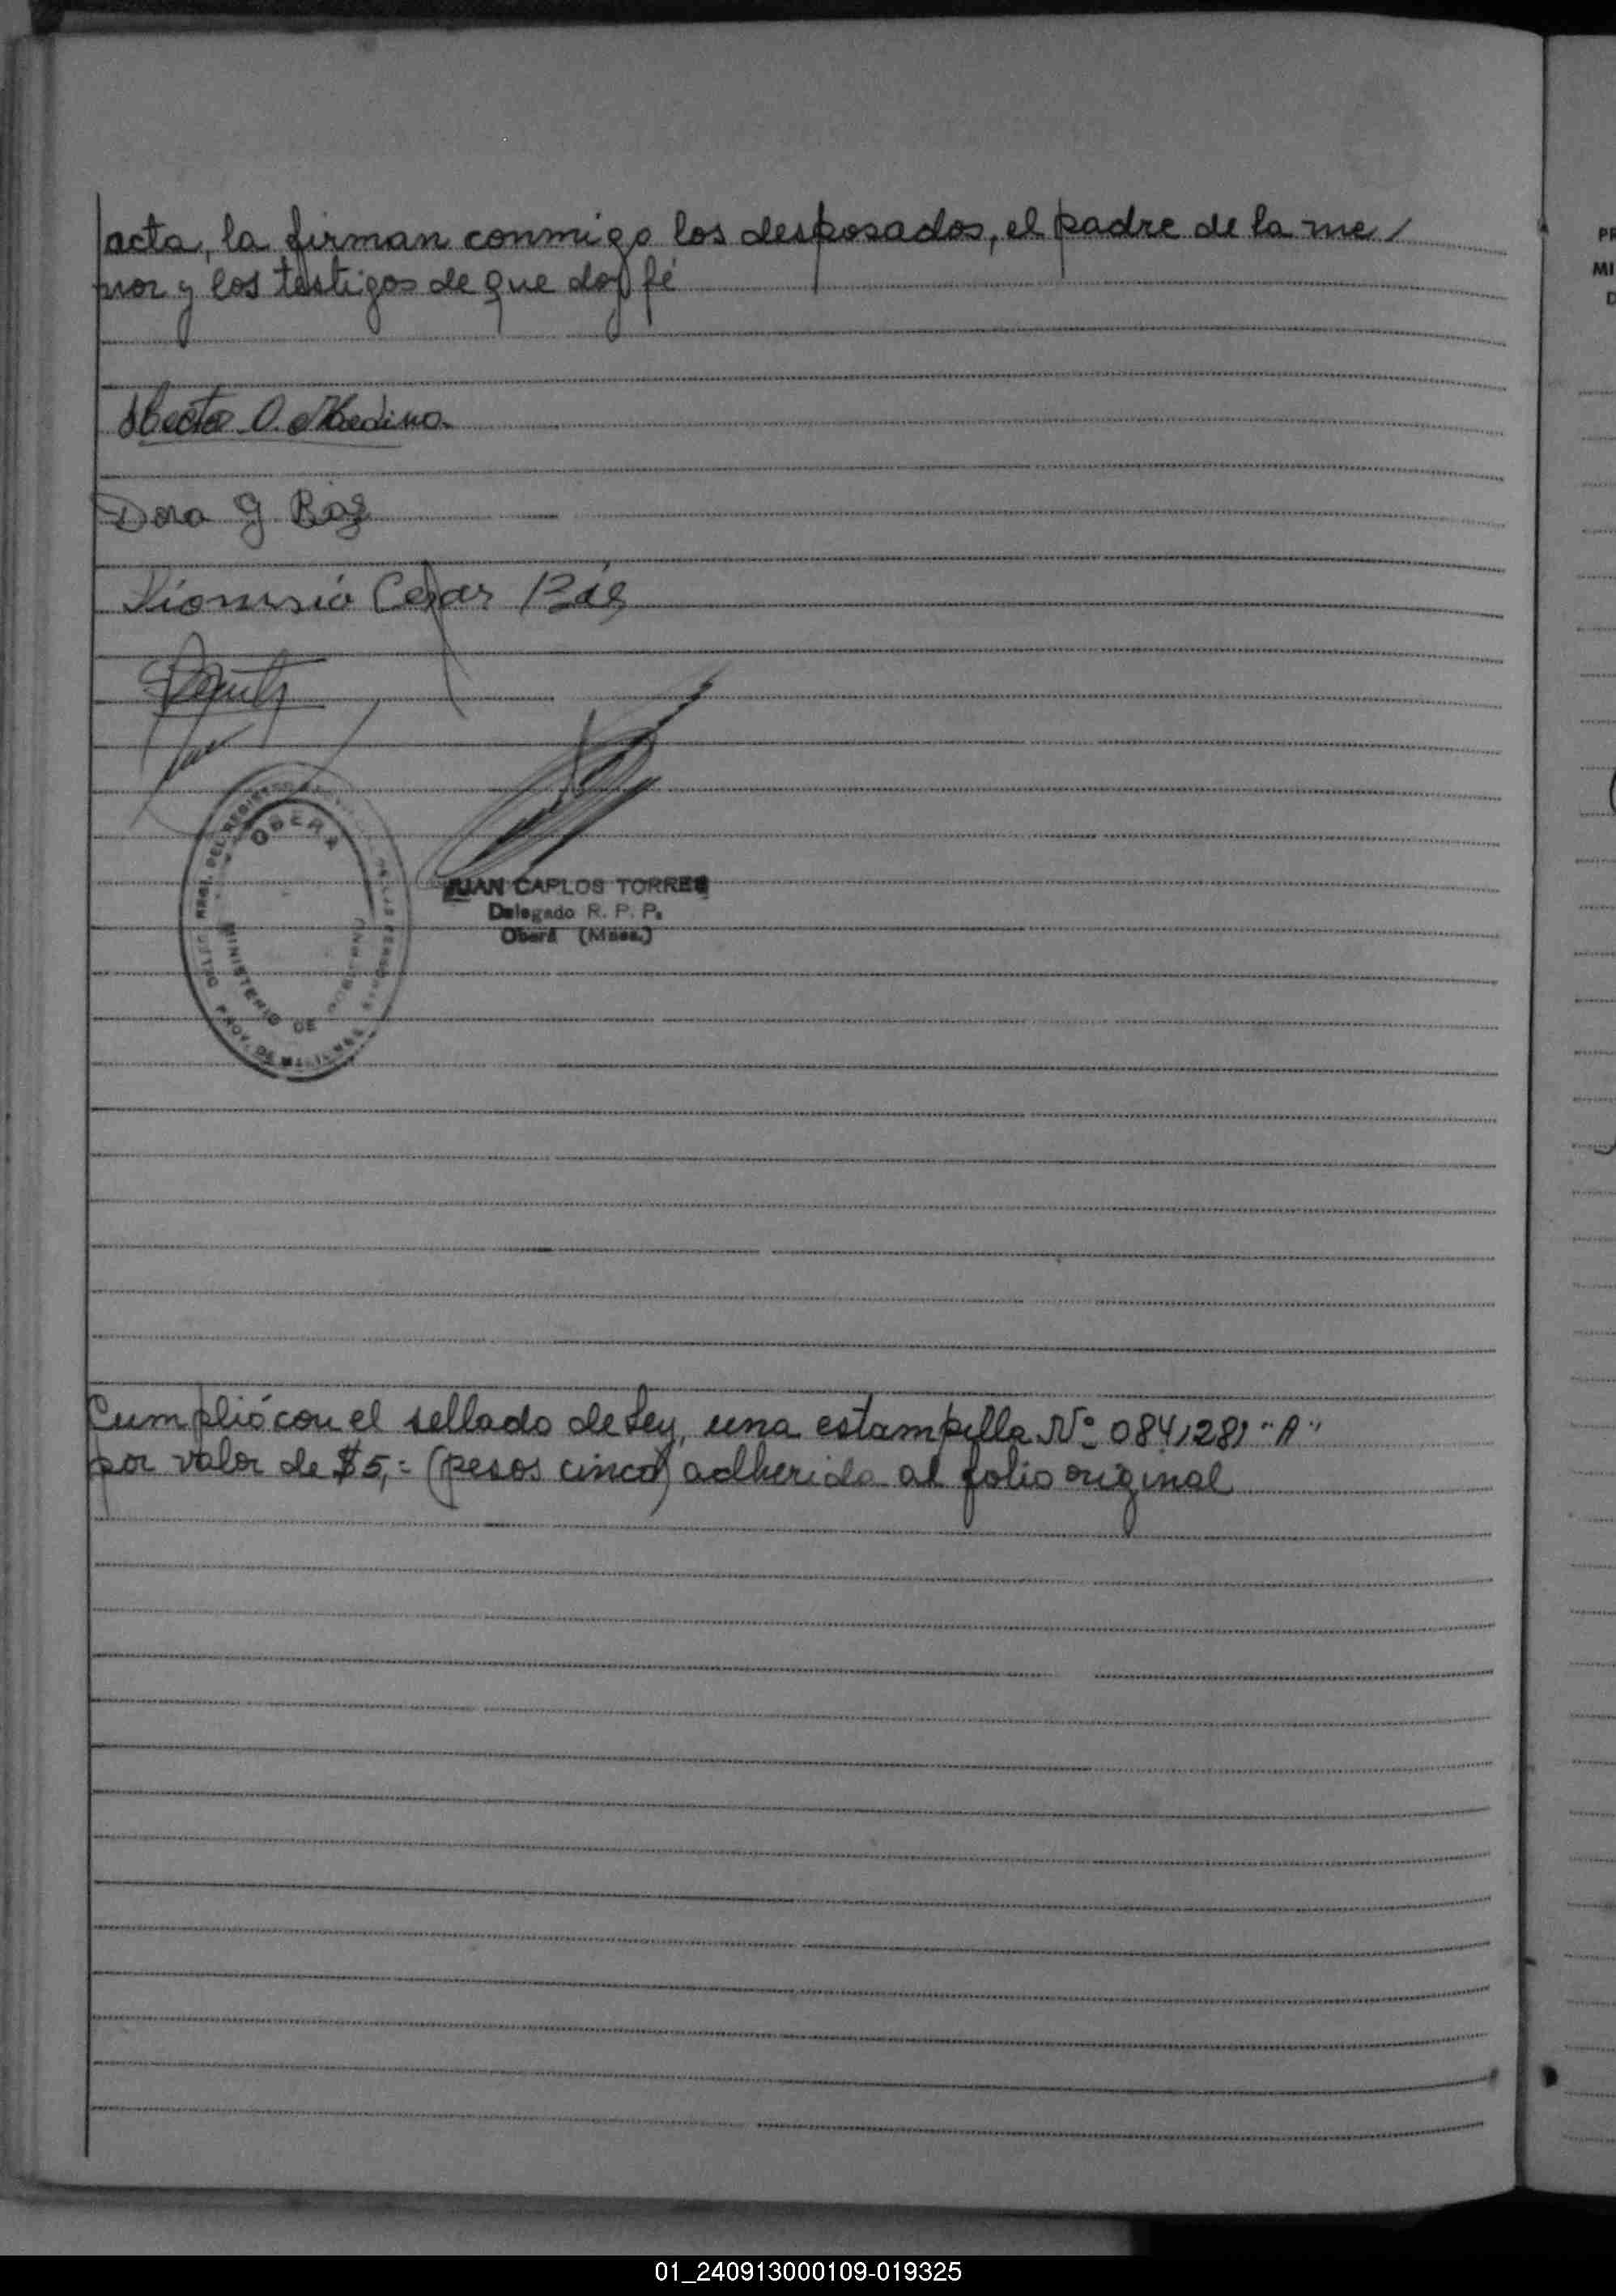 acta, la firman conmigo los desposados, el padre de la me/
nor y los testigos de que doy fé
Hector O. Medina
Dora G Báez
Dionisio Cesar Báez
DEL REGISTRO
OBERA
MINISTERIO DE GOBIERNO
PROV. DE MISIONES
JUAN CARLOS TORRES
Delegado R. P. P.
Oberá (Mnes.)
Cumplió con el sellado de Ley, una estampilla Nº 084,281 "A"
por valor de $5,= (pesos cinco) adherida al folio original
PR
MI
D
01_240913000109-019325